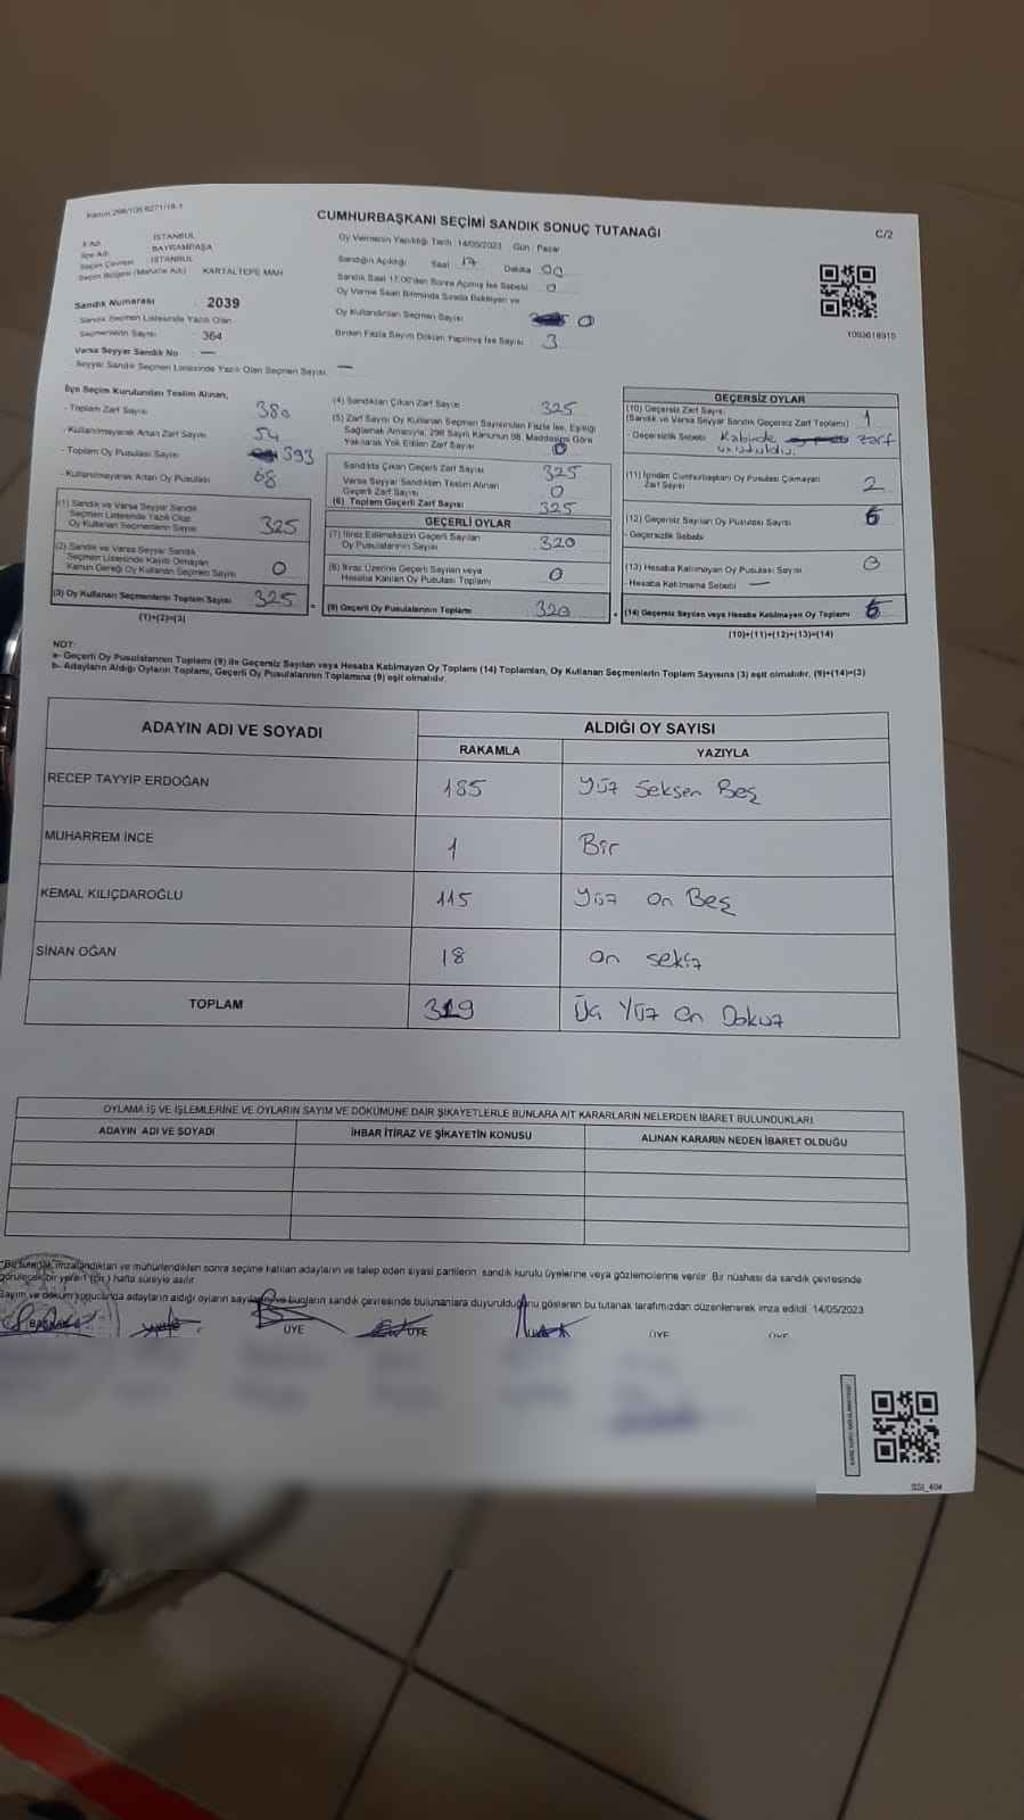 CUMHURBAŞKANI SEÇİMİ SANDIK SONUÇ TUTANAĞI
C/2
İSTANBUL
BAYRAMPAŞA
İSTANBUL
KARTALTEPE MAH
Oy Vermenin Yapıldığı Tarih 14/05/2023 Gün Pazar
Sandığın Açıldığı Saat 17 Dakika 00
Sandık Saat 17:00'den Sonra Açılmış İse Sebebi 0
Oy Verme Saati Bitiminde Sırada Bekleyen ve
Oy Kullandırılan Seçmen Sayısı 0
Birden Fazla Sayım Döküm Yapılmış İse Sayısı 3
Sandık Numarası 2039
Sandık Seçmen Listesinde Yazılı Olan
Seçmenlerin Sayısı 364
Varsa Seyyar Sandık No —
Seyyar Sandık Seçmen Listesinde Yazılı Olan Seçmen Sayısı —
İlçe Seçim Kurulundan Teslim Alınan,
- Toplam Zarf Sayısı 380
- Kullanılmayarak Artan Zarf Sayısı 54
- Toplam Oy Pusulası Sayısı 393
- Kullanılmayarak Artan Oy Pusulası 68
(1) Sandık ve Varsa Seyyar Sandık
Seçmen Listesinde Yazılı Olup
Oy Kullanan Seçmenlerin Sayısı 325
(2) Sandık ve Varsa Seyyar Sandık
Seçmen Listesinde Kaydı Olmayan
Kanun Gereği Oy Kullanan Seçmen Sayısı 0
(3) Oy Kullanan Seçmenlerin Toplam Sayısı 325
(1)+(2)=(3)
(4) Sandıktan Çıkan Zarf Sayısı 325
(5) Zarf Sayısı Oy Kullanan Seçmen Sayısından Fazla İse, Eşitliği
Sağlamak Amacıyla, 298 Sayılı Kanunun 98. Maddesine Göre
Yakılarak Yok Edilen Zarf Sayısı 0
Sandıkta Çıkan Geçerli Zarf Sayısı 325
Varsa Seyyar Sandıktan Teslim Alınan
Geçerli Zarf Sayısı 0
(6) Toplam Geçerli Zarf Sayısı 325
GEÇERLİ OYLAR
(7) İtiraz Edilmeksizin Geçerli Sayılan
Oy Pusulalarının Sayısı 320
(8) İtiraz Üzerine Geçerli Sayılan veya
Hesaba Katılan Oy Pusulası Toplamı 0
(9) Geçerli Oy Pusulalarının Toplamı 320
GEÇERSİZ OYLAR
(10) Geçersiz Zarf Sayısı
(Sandık ve Varsa Seyyar Sandık Geçersiz Zarf Toplamı) 1
- Geçersizlik Sebebi Kabinde zarf
(11) İçinden Cumhurbaşkanı Oy Pusulası Çıkmayan
Zarf Sayısı 2
(12) Geçersiz Sayılan Oy Pusulası Sayısı
- Geçersizlik Sebebi
(13) Hesaba Katılmayan Oy Pusulası Sayısı 0
- Hesaba Katılmama Sebebi —
(14) Geçersiz Sayılan veya Hesaba Katılmayan Oy Toplamı
(10)+(11)+(12)+(13)=(14)
NOT:
a- Geçerli Oy Pusulalarının Toplamı (9) ile Geçersiz Sayılan veya Hesaba Katılmayan Oy Toplamı (14) Toplamları, Oy Kullanan Seçmenlerin Toplam Sayısına (3) eşit olmalıdır. (9)+(14)=(3)
b- Adayların Aldığı Oyların Toplamı, Geçerli Oy Pusulalarının Toplamına (9) eşit olmalıdır.
ADAYIN ADI VE SOYADI ALDIĞI OY SAYISI
RAKAMLA YAZIYLA
RECEP TAYYİP ERDOĞAN 185 Yüz Seksen Beş
MUHARREM İNCE 1 Bir
KEMAL KILIÇDAROĞLU 115 Yüz on Beş
SİNAN OĞAN 18 on sekiz
TOPLAM 319 Üç Yüz on Dokuz
OYLAMA İŞ VE İŞLEMLERİNE VE OYLARIN SAYIM VE DÖKÜMÜNE DAİR ŞİKAYETLERLE BUNLARA AİT KARARLARIN NELERDEN İBARET BULUNDUKLARI
ADAYIN ADI VE SOYADI İHBAR İTİRAZ VE ŞİKAYETİN KONUSU ALINAN KARARIN NEDEN İBARET OLDUĞU
*Bu tutanak imzalandıktan ve mühürlendikten sonra seçime katılan adayların ve talep eden siyasi partilerin sandık kurulu üyelerine veya gözlemcilerine verilir. Bir nüshası da sandık çevresinde
görülecek bir yere 1 (bir) hafta süreyle asılır.
Sayım ve döküm sonucunda adayların aldığı oyların sayısını ve bunların sandık çevresinde bulunanlara duyurulduğunu gösteren bu tutanak tarafımızdan düzenlenerek imza edildi. 14/05/2023
BAŞKAN ÜYE ÜYE ÜYE ÜYE